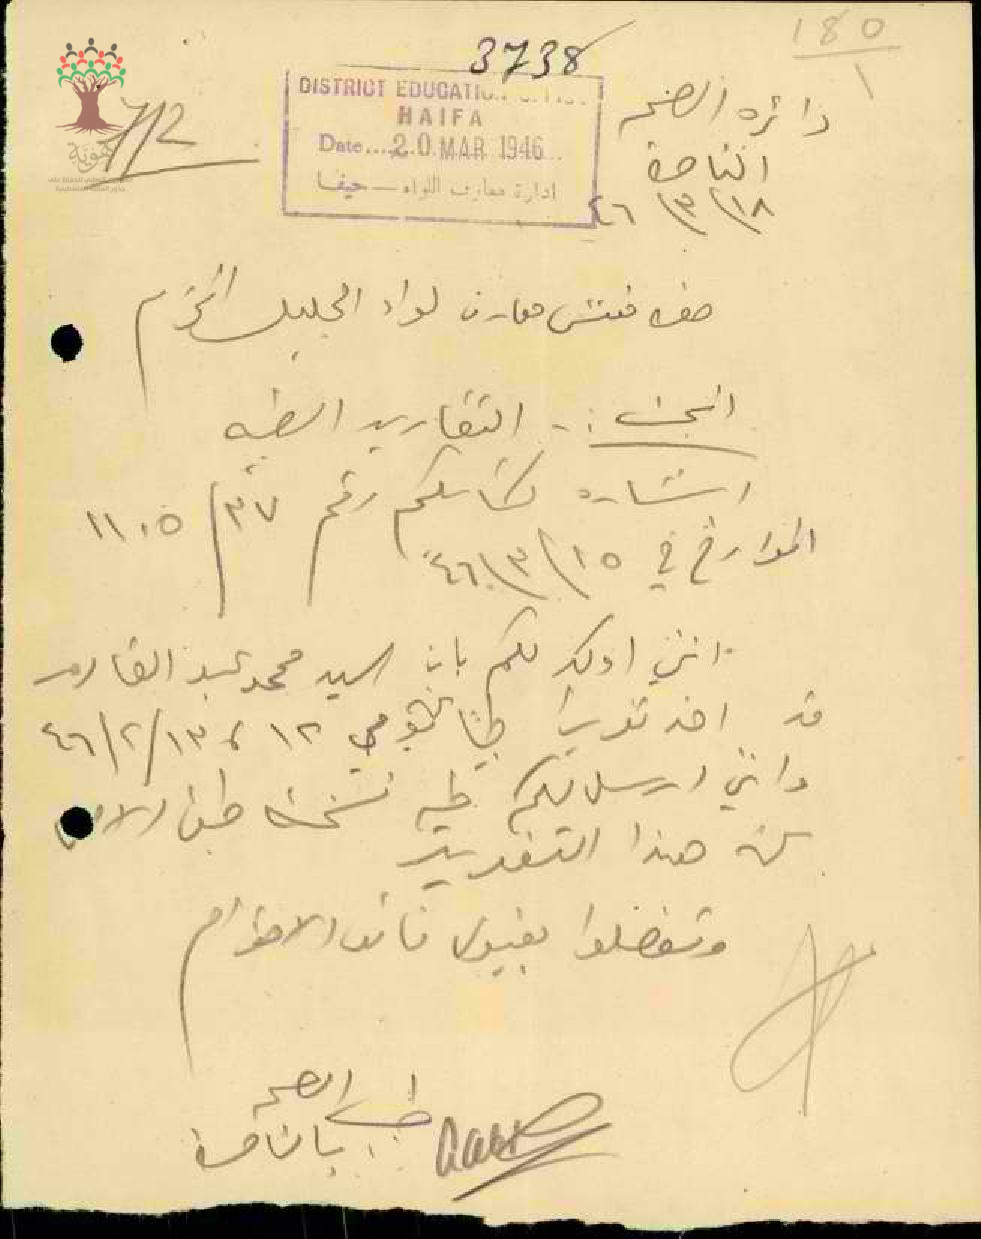 180
1
3738
7/2
DISTRICT EDUCATION OFFICE
HAIFA
Date.... 20 MAR 1946
ادارة معارف اللواء — حيفا
دائرة الصحه
الناصرة
١٨/٣/٤٦
مفتش معارف لواء الجليل المحترم
البحث :- التقارير الطبيه
اشارة لكتابكم رقم ٣٧/١١٠٥
المؤرخ في ١٥/٣/٤٦
انني اؤكد لكم بان السيد محمد عبد القادر
قد اخذ تقريرا طبيا ليومي ١٢ و ١٣/٢/٤٦
وانني ارسل لكم طيه نسخة طبق الاصل
عن هذا التقرير
وتفضلوا بقبول فائق الاحترام
طبيب الصحه
بالناصرة